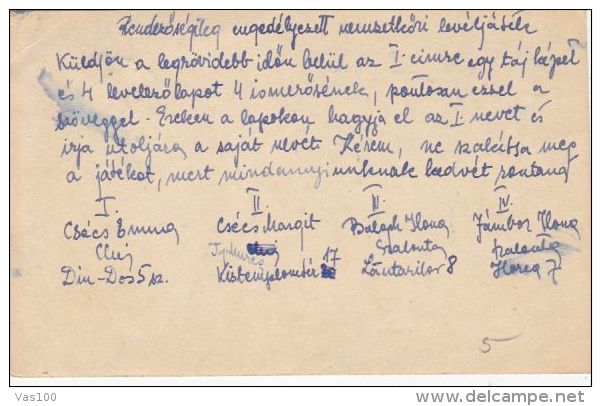 Rendezőségileg engedélyezett nemzetközi levéljáték
Küldjön a legrövidebb időn belül az I-címre egy tájképet
és 4 levelezőlapot 4 ismerősének, pontosan ezzel a
szöveggel. Ezeken a lapokon hagyja el az I nevet és
írja utoljára a saját nevét. Kérem, ne szakítsa meg
a játékot, mert mindannyiunknak kedvét rontaná
I. II. III. IV.
Csécs Emma Csécs Margit Balogh Ilona Jámbor Ilona
Cluj Tg. Mureș Szalonta Szalonta
17
Din-Dos 5 sz. Kistemplomtér Lăutarilor 8 Horea 7.
5
Vas100
www.delcampe.net